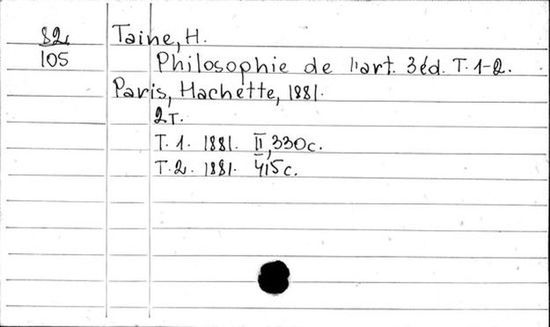 82
105
Taine, H.
Philosophie de l'art. 3éd. T. 1-2.
Paris, Hachette, 1881.
2T.
T. 1. 1881. II, 330c.
T. 2. 1881. 415c.